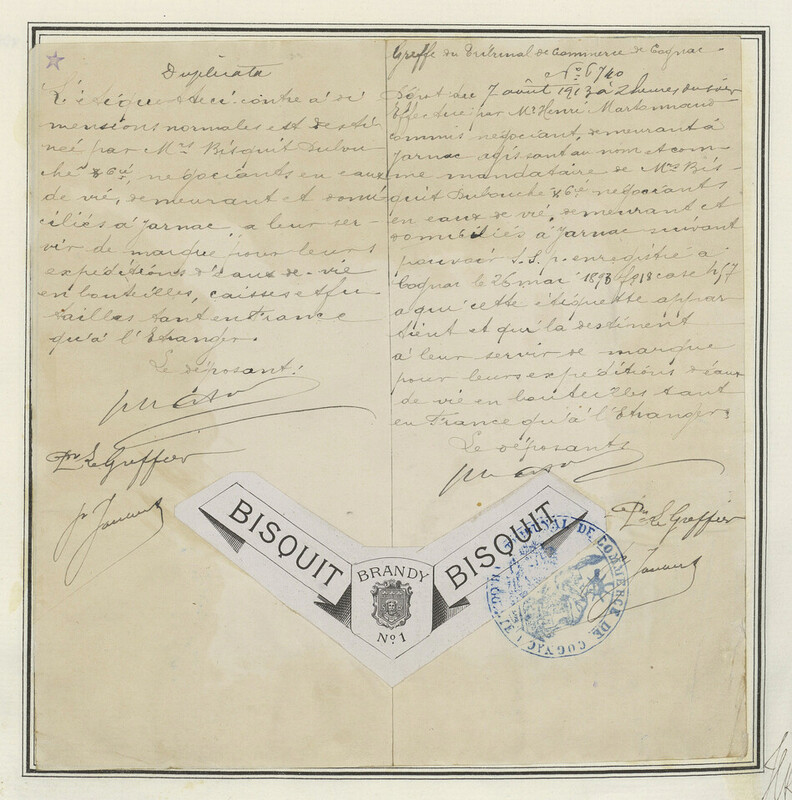 Duplicata
L'étiquette ci contre à di
mensions normales est desti
née par Mrs Bisquit Dubou
ché & Cie, négociants en eaux
de vie, demeurant et domi
ciliés à Jarnac, a leur ser-
vir de marque pour leurs
expéditions d'eaux-de-vie
en bouteilles, caisses et fu
tailles tant en France
qu'à l'Etranger.
Le déposant:
Pr Le Greffier
Greffe du Tribunal de Commerce de Cognac
No 6740
Dépot du 7 août 1913 à 2 heures du soir
Effectué par Mr Henri Martonnaud
commis négociant, demeurant à
Jarnac agissant au nom et com-
me mandataire de Mrs Bis-
quit Dubouché & Cie négociants
en eaux de vie, demeurant et
domiciliés à Jarnac suivant
pouvoir S.S.p. enregistré à
Cognac le 26 mai 1893 fo 18 case
a qui cette étiquette appar
tient et qui la destinent
à leur servir de marque
pour leurs expéditions d'eaux
de vie en bouteilles tant
en France qu'à l'Etranger.
Le déposant:
Pr Le Greffier
BISQUIT
BRANDY
No 1
BISQUIT
TRIBUNAL DE COMMERCE DE COGNAC